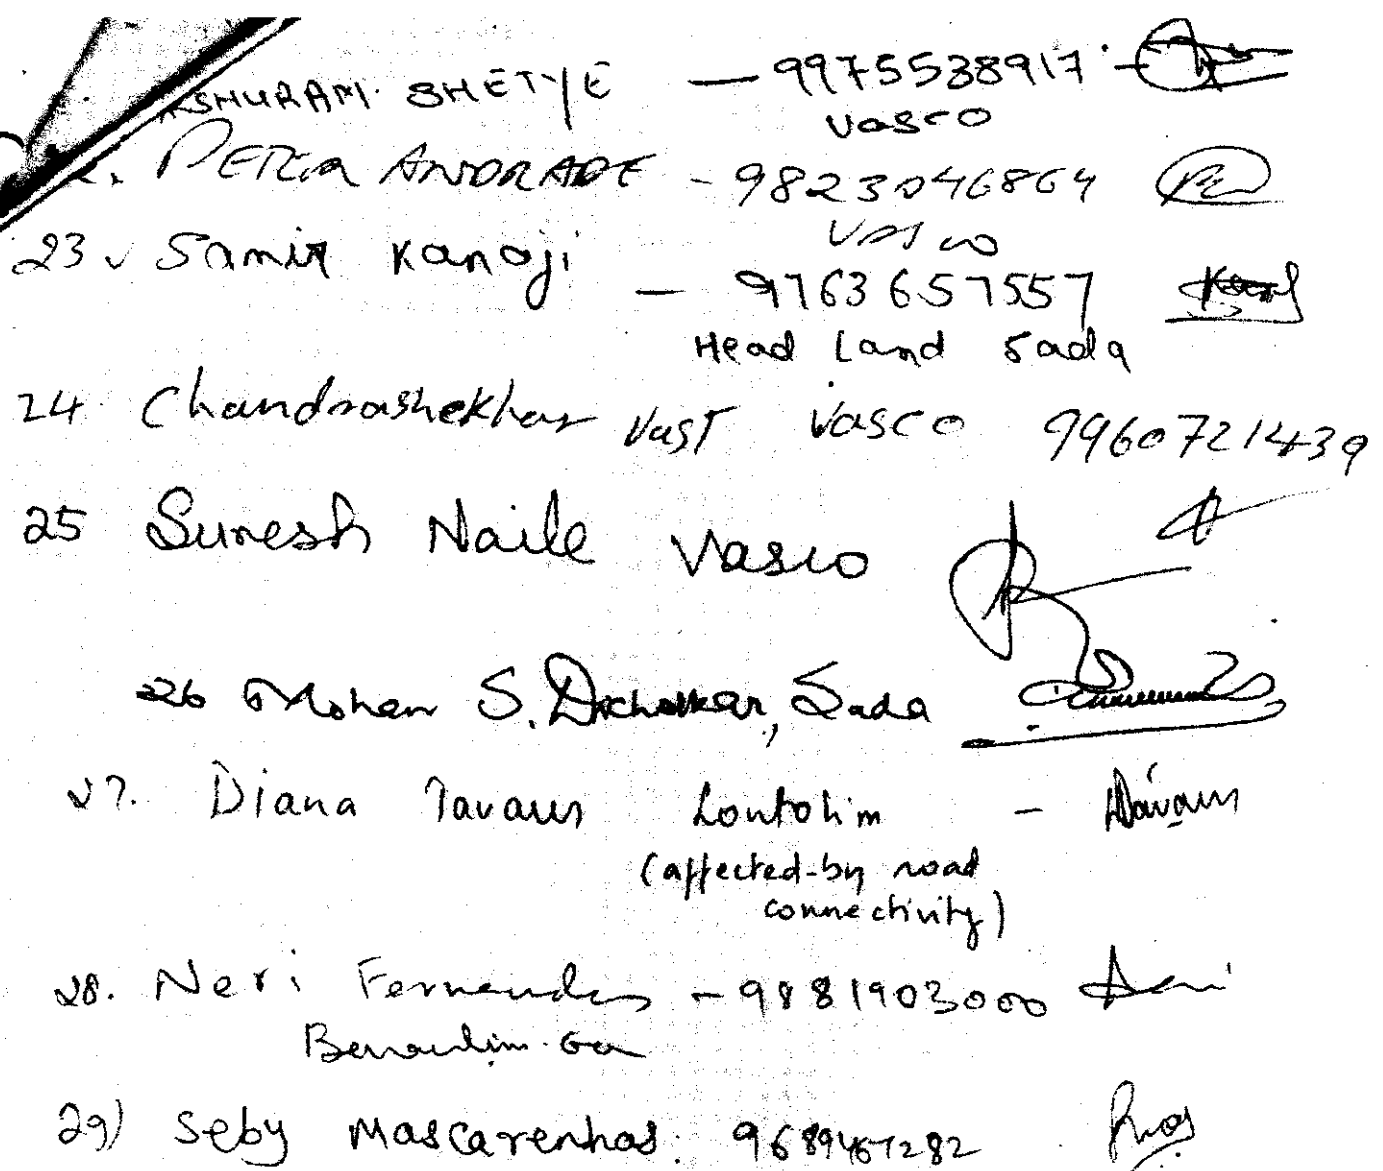 SHURAM SHETYE — 9975538917 -
Vasco
2. PETER ANDRADE - 9823046864
VASCO
23. Samir Kanoji
— 9763657557
Head Land Sada
24 Chandrashekhar Vast Vasco 9960721439
25 Suresh Naile Vasco
26 Mohan S. Sada
27. Diana Tavares Loutolim -
(affected by road
connectivity)
28. Neri Fernandes - 9881903000
Benaulim. Goa
29) Seby Mascarenhas. 9689467282